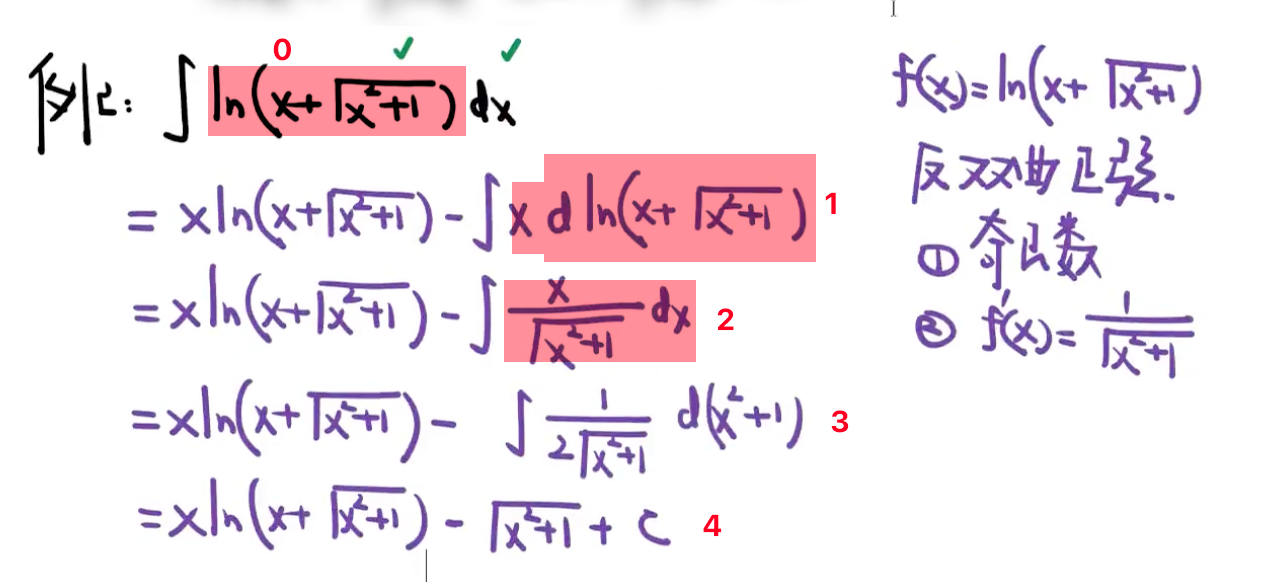 例2: ∫ ln(x+√(x²+1)) dx 0 ✓ ✓
= x ln(x+√(x²+1)) - ∫ x d ln(x+√(x²+1)) 1
= x ln(x+√(x²+1)) - ∫ x/√(x²+1) dx 2
= x ln(x+√(x²+1)) - ∫ 1/(2√(x²+1)) d(x²+1) 3
= x ln(x+√(x²+1)) - √(x²+1) + C 4
f(x)=ln(x+√(x²+1))
反双曲正弦.
① 奇函数
② f'(x)=1/√(x²+1)